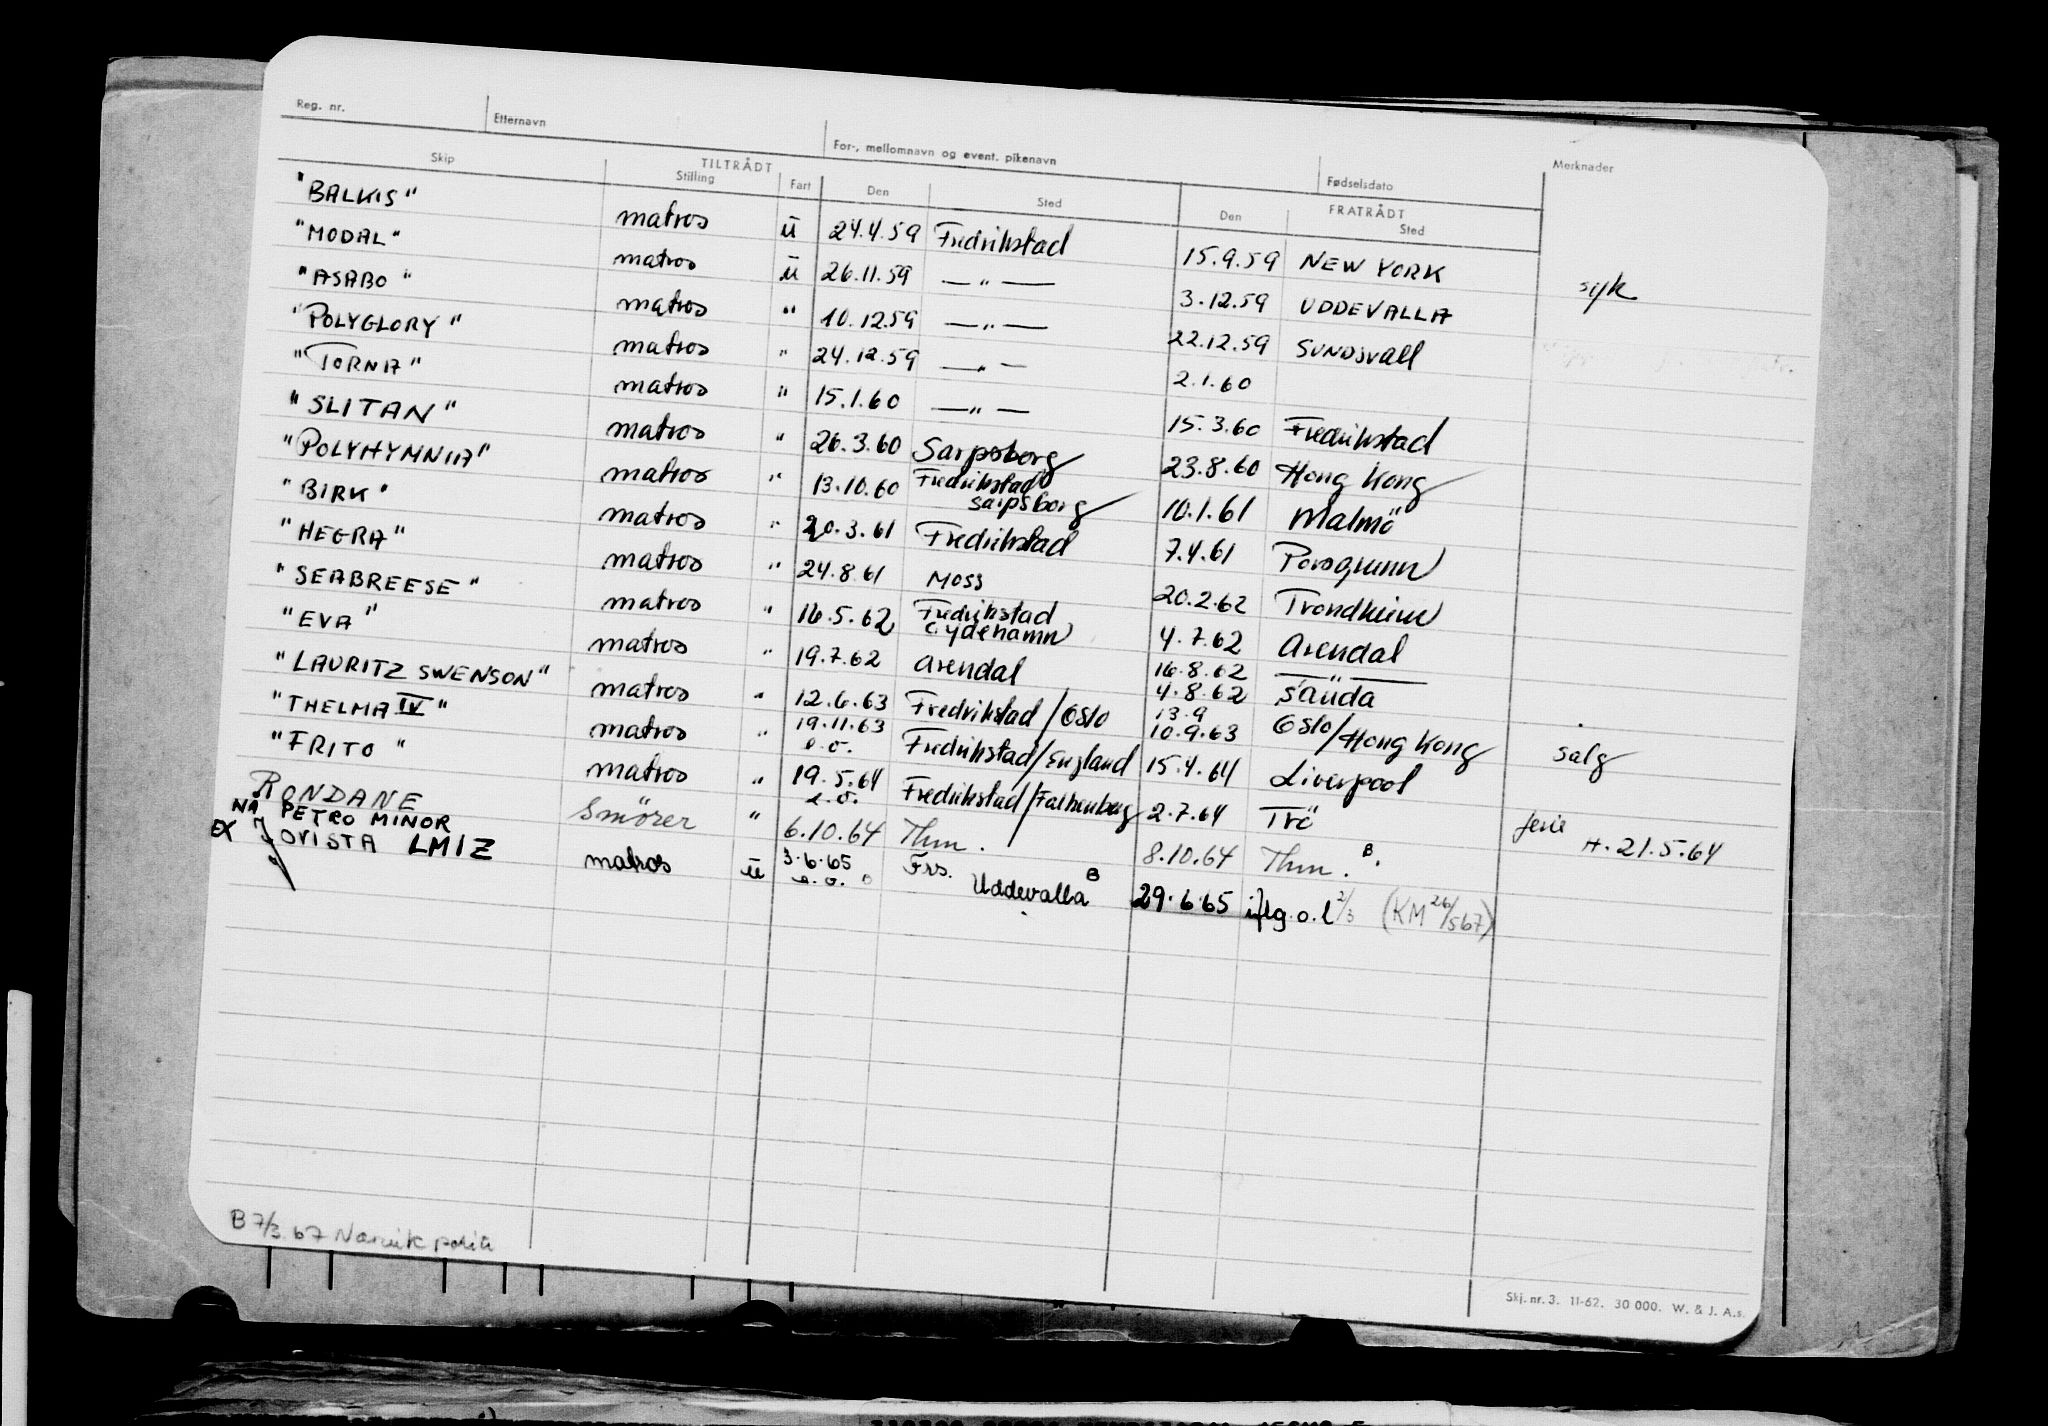 Reg. nr. Etternavn For-, mellomnavn og event. pikenavn Fødselsdato Merknader
Skip TILTRÅDT FRATRÅDT
Stilling Fart Den Sted Den Sted
"BALKIS" matros ū 24.4.59 Fredrikstad 15.9.59 NEW YORK syk
"MODAL" matros ū 26.11.59 — " — 3.12.59 UDDEVALLA
"ASABO" matros " 10.12.59 — " — 22.12.59 SUNDSVALL
"POLYGLORY" matros " 24.12.59 — " — 2.1.60
"TORNA" matros " 15.1.60 — " — 15.3.60 Fredrikstad
"SLITAN" matros " 26.3.60 Sarpsborg 23.8.60 Hong Kong
"POLYHYMNIA" matros " 13.10.60 Fredrikstad Sarpsborg 10.1.61 Malmö
"BIRK" matros " 20.3.61 Fredrikstad 7.4.61 Porsgrunn
"HEGRA" matros " 24.8.61 Moss 20.2.62 Trondheim
"SEABREESE" matros " 16.5.62 Fredrikstad Eydehamn 4.7.62 Arendal
"EVA" matros " 19.7.62 Arendal 16.8.62 — " —
4.8.62 Sauda
"LAURITZ SWENSON" matros " 12.6.63 Fredrikstad/Oslo 13.9 10.9.63 Oslo/Hong Kong salg
"THELMA IV" matros " 19.11.63 e.o. Fredrikstad/England 15.4.64 Liverpool
"FRITO" matros " 19.5.64 e.o. Fredrikstad/Falkenberg 2.7.64 Trö ferie H. 21.5.64
RONDANE Smörer " 6.10.64 Thm. 8.10.64 Thm. B.
NÅ PETRO MINOR
EX JOVISTA LMIZ matros ū 3.6.65 e.o. Frs. Uddevalla B 29.6.65 iflg. o.l 2/3 (KM 26/567)
B 7/3.67 Narvik politi
Skj. nr. 3. 11-62. 30 000. W. & J. A.s.